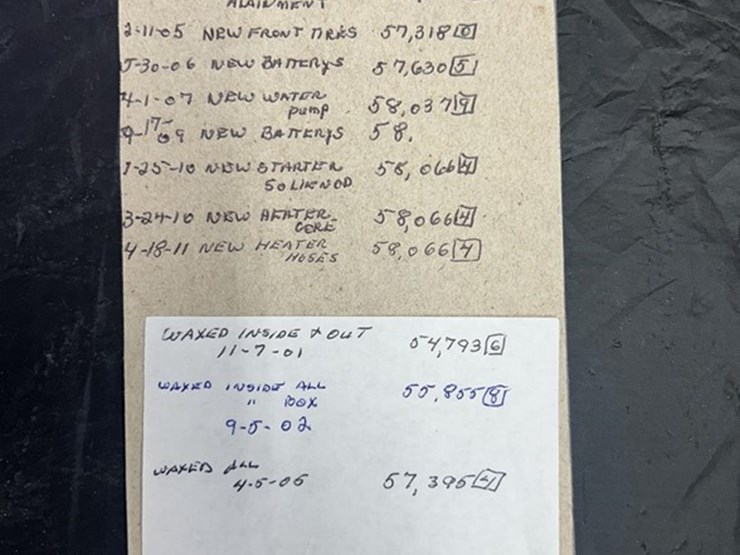 ALAINMENT
2-11-05 NEW FRONT TIRES 57,318 0
5-30-06 NEW BATTERYS 57,630 5
4-1-07 NEW WATER 58,037 9
PUMP
9-17-09 NEW BATTERYS 58,
1-25-10 NEW STARTER 58,066 4
SOLIENOD
3-24-10 NEW HEATER 58,066 4
CORE
4-18-11 NEW HEATER 58,066 4
HOSES
WAXED INSIDE & OUT 54,793 6
11-7-01
WAXED INSIDE ALL 55,855 8
" BOX
9-5-02
WAXED ALL
4-5-05 57,395 4